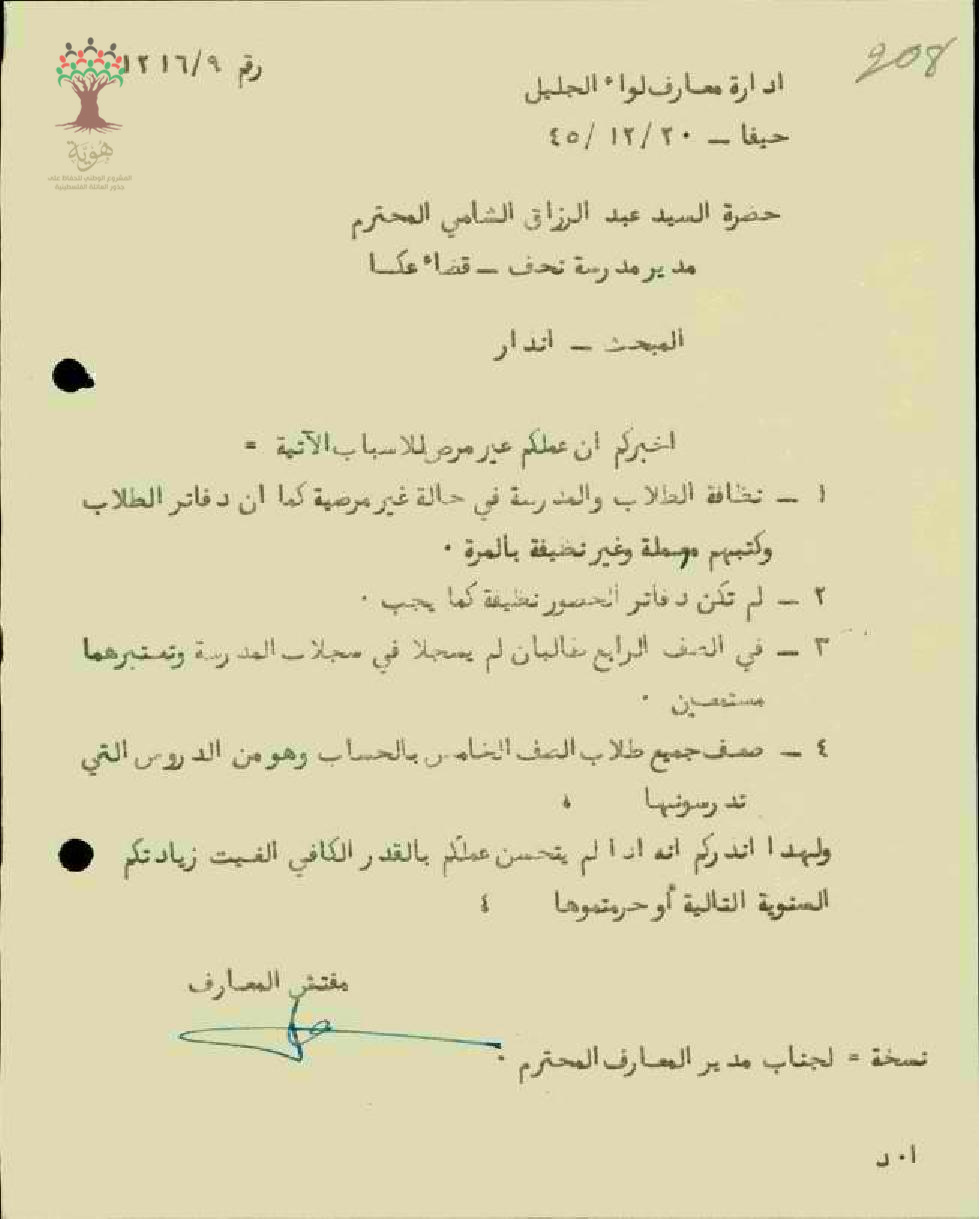 208
رقم ١٢١٦/٩
ادارة معارف لواء الجليل
حيفا – ٢٠ /١٢ /٤٥
هوية
المشروع الوطني للحفاظ على
جذور العائلة الفلسطينية
حضرة السيد عبد الرزاق الشامي المحترم
مدير مدرسة نحف – قضاء عكا
المبحث – انذار
اخبركم ان عملكم غير مرض للاسباب الآتية =
١ – نظافة الطلاب والمدرسة في حالة غير مرضية كما ان دفاتر الطلاب
وكتبهم مهملة وغير نظيفة بالمرة ٠
٢ – لم تكن دفاتر الحضور نظيفة كما يجب ٠
٣ – في الصف الرابع طالبان لم يسجلا في سجلات المدرسة وتعتبرهما
مستمعين ٠
٤ – ضعف جميع طلاب الصف الخامس بالحساب وهو من الدروس التي
تدرسونها
ولهذا انذركم انه اذا لم يتحسن عملكم بالقدر الكافي الغيت زيادتكم
السنوية التالية أو حرمتموها
مفتش المعارف
نسخة = لجناب مدير المعارف المحترم ٠
ا٠د